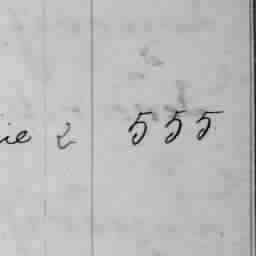 ie 2 555